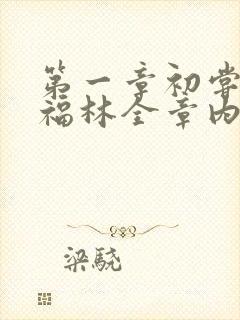 第一章初尝
福林全章内
梁骁